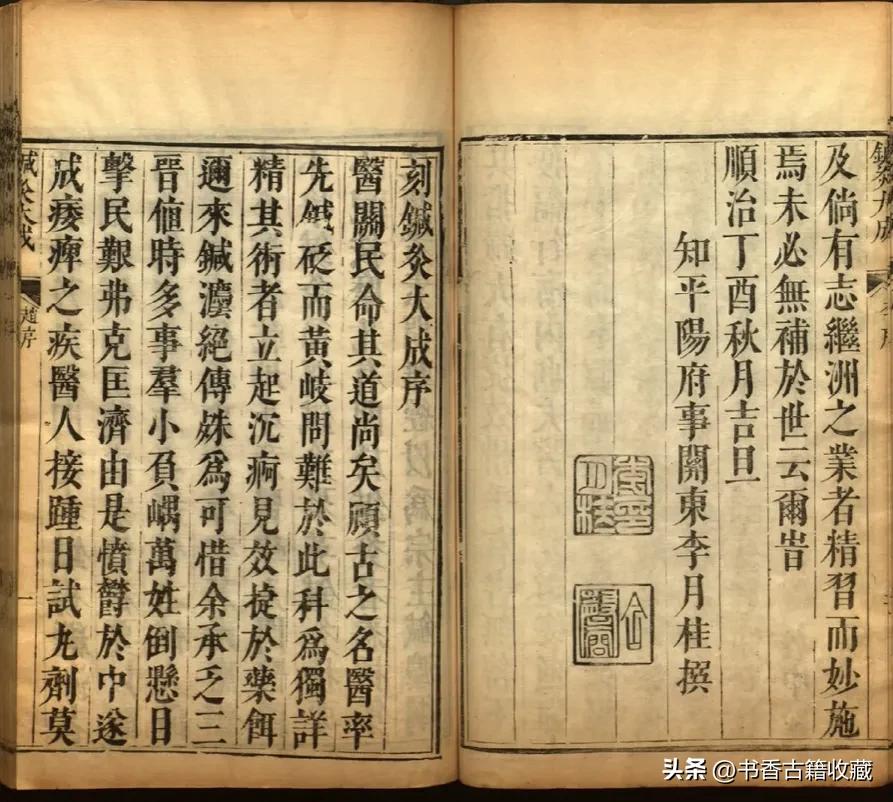 鍼灸大成
及倘有志繼洲之業者精習而妙施
焉未必無補於世云爾旹
順治丁酉秋月吉旦
知平陽府事關東李月桂撰
李印月桂
刻鍼灸大成序
醫關民命其道尚矣顧古之名醫率
先鍼砭而黃岐問難於此科爲獨詳
精其術者立起沉痾見效捷於藥餌
邇來鍼灋絕傳殊爲可惜余承乏三
晉値時多事羣小負嵎萬姓倒懸日
擊民艱弗克匡濟由是憤鬱於中遂
成痿痺之疾醫人接踵日試丸劑莫
鍼灸大成
趙序
一
头条 @书香古籍收藏